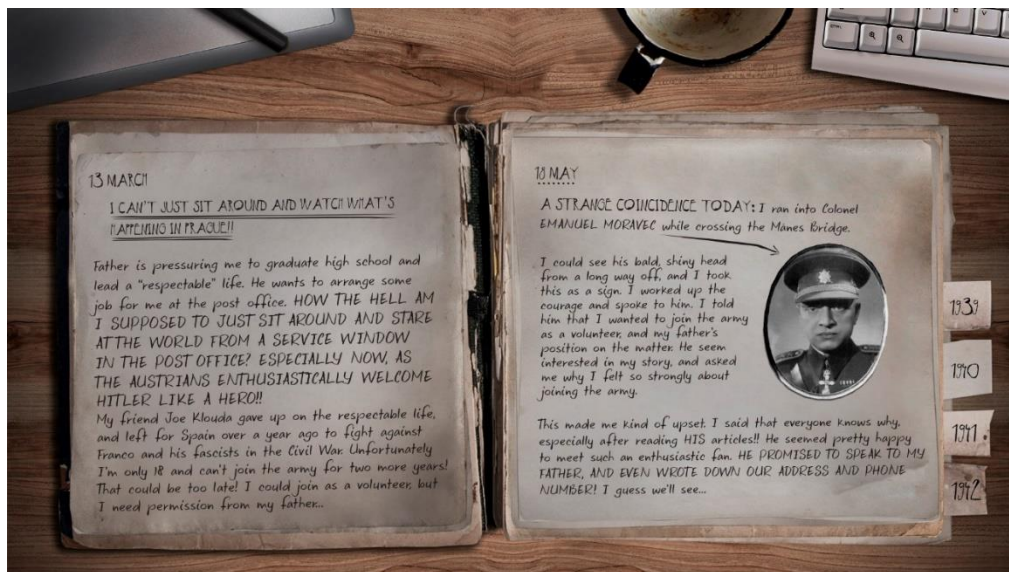 13 MARCH
I CAN'T JUST SIT AROUND AND WATCH WHAT'S
HAPPENING IN PRAGUE!!
Father is pressuring me to graduate high school and
lead a "respectable" life. He wants to arrange some
job for me at the post office. HOW THE HELL AM
I SUPPOSED TO JUST SIT AROUND AND STARE
AT THE WORLD FROM A SERVICE WINDOW
IN THE POST OFFICE? ESPECIALLY NOW, AS
THE AUSTRIANS ENTHUSIASTICALLY WELCOME
HITLER LIKE A HERO!!
My friend Joe Klouda gave up on the respectable life,
and left for Spain over a year ago to fight against
Franco and his fascists in the Civil War. Unfortunately
I'm only 18 and can't join the army for two more years!
That could be too late! I could join as a volunteer, but
I need permission from my father...
18 MAY
A STRANGE COINCIDENCE TODAY: I ran into Colonel
EMANUEL MORAVEC while crossing the Manes Bridge.
I could see his bald, shiny head
from a long way off, and I took
this as a sign. I worked up the
courage and spoke to him. I told
him that I wanted to join the army
as a volunteer, and my father's
position on the matter. He seem
interested in my story, and asked
me why I felt so strongly about
joining the army.
This made me kind of upset. I said that everyone knows why,
especially after reading HIS articles!! He seemed pretty happy
to meet such an enthusiastic fan. HE PROMISED TO SPEAK TO MY
FATHER, AND EVEN WROTE DOWN OUR ADDRESS AND PHONE
NUMBER! I guess we'll see...
1939
1940
1941
1942